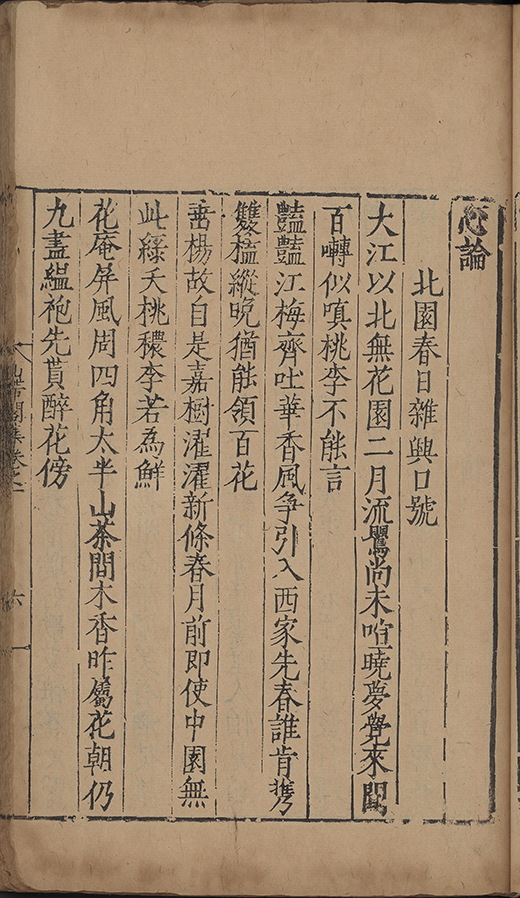 心論
北園春日雜興口號
大江以北無花園二月流鶯尚未喧曉夢覺來聞
百囀似嗔桃李不能言
豔豔江梅齊吐華香風爭引入西家先春誰肯携
雙榼縱晚猶能領百花
垂楊故自是嘉樹濯濯新條春月前即使中園無
此綠夭桃穠李若為鮮
花庵屏風周四角太半山茶間木香昨屬花朝仍
九盡緼袍先貰醉花傍
六